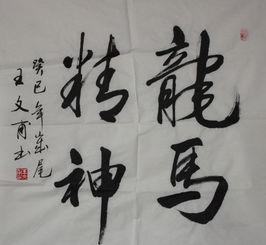 龍馬
精神
癸巳年歲尾
王文甫书